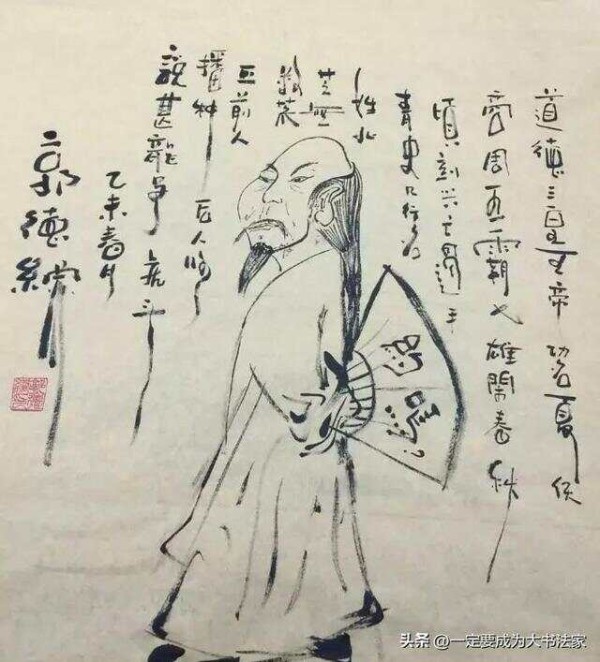 道德三皇五帝 功名夏侯
商周五霸七雄闹春秋
顷刻兴亡过手
青史几行名
姓北
芒无
数荒
丘前人
播种 后人收
说甚龙争虎斗
乙未春月
郭德纲
头条 @一定要成为大书法家